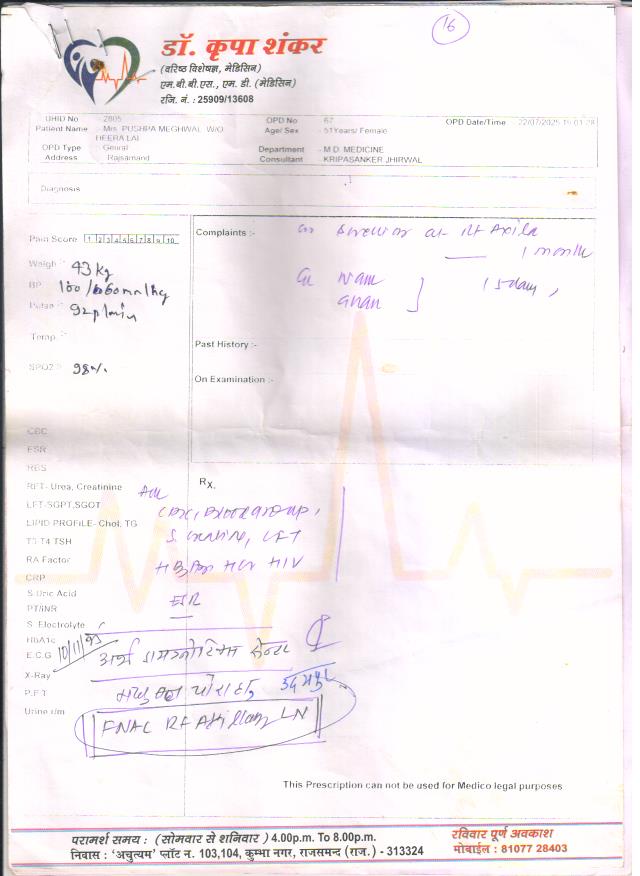 16
डॉ. कृपा शंकर
(वरिष्ठ विशेषज्ञ, मेडिसिन)
एम.बी.बी.एस., एम. डी. (मेडिसिन)
रजि. नं. : 25909/13608
UHID No :- 2805 OPD No :- 67 OPD Date/Time :- 22/07/2025
Patient Name :- Mrs. PUSHPA MEGHWAL W/O Age/ Sex :- 51Years/ Female
HEERA LAL
OPD Type :- Department :- M.D. MEDICINE
Address :- Rajsamand Consultant :- KRIPASANKER JHIRWAL
Diagnosis
Pain Score 1 2 3 4 5 6 7 8 9 10
Complaints :- at Rt Axila
1 month
Weigh :- 43 kg
15day,
BP mmHg
Pulse :- 92p/min
Temp :-
Past History :-
SPO2 :- 98%
On Examination :-
CBC
ESR
RBS
RFT- Urea, Creatinine
Rx.
Adv
LFT-SGPT,SGOT
CBC, Blood group,
LIPID PROFILE- Chol, TG
T3-T4 TSH
LFT
RA Factor
HCV HIV
CRP
S.Uric Acid
ESR
PT/INR
S. Electrolyte
HbA1c
E.C.G
X-Ray
P.F.T
उदयपुर
Urine r/m
FNAC Rt Axillary LN
This Prescription can not be used for Medico legal purposes
परामर्श समय : (सोमवार से शनिवार ) 4.00p.m. To 8.00p.m. रविवार पूर्ण अवकाश
निवास : 'अचुत्यम' प्लॉट न. 103,104, कुम्भा नगर, राजसमन्द (राज.) - 313324 मोबाईल : 81077 28403